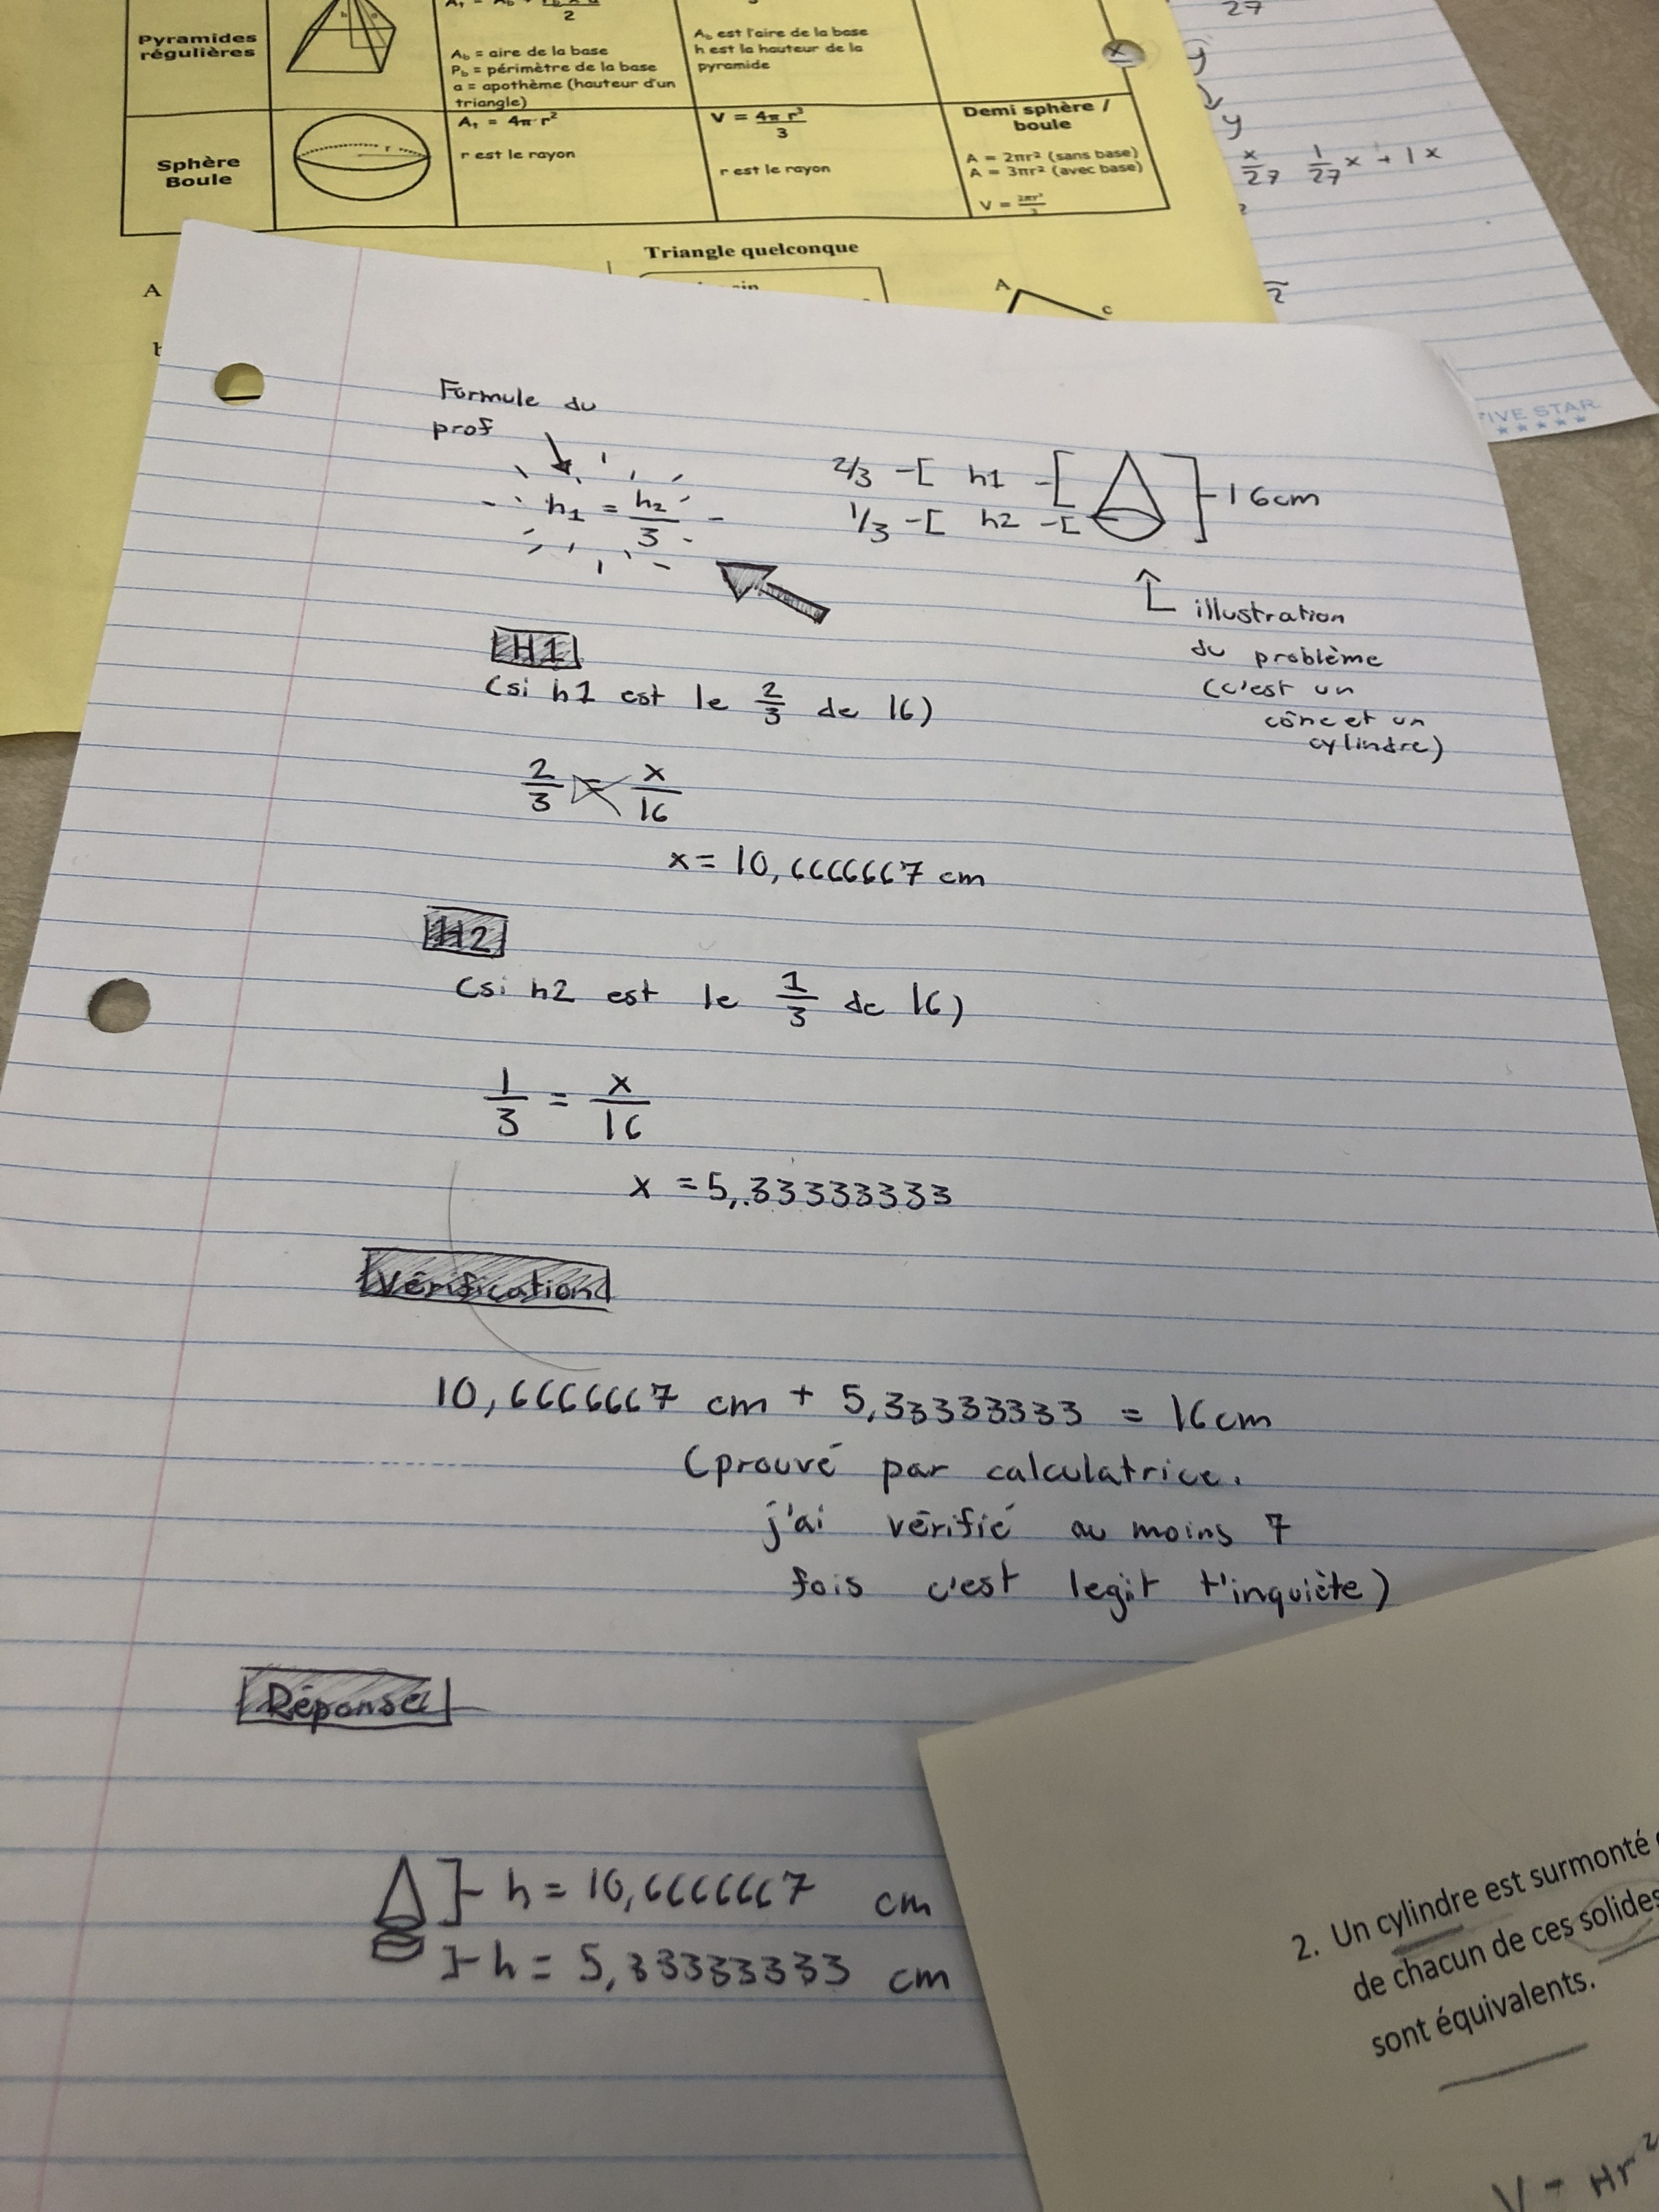 Pyramides
régulières
2
A_b = aire de la base
P_b = périmètre de la base
a = apothème (hauteur d'un
triangle)
A_b est l'aire de la base
h est la hauteur de la
pyramide
Sphère
Boule
r
A_T = 4π r²
r est le rayon
V = 4π r³
3
r est le rayon
Demi sphère /
boule
A = 2πr² (sans base)
A = 3πr² (avec base)
V = 2πr³
3
Triangle quelconque
A
A
c
x
27
y
y
x/27 1/27 x + 1x
2
FIVE STAR
Formule du
prof
h₁ = h₂/3
2/3 -[ h1 -[
1/3 -[ h2 -[
]-16cm
illustration
du problème
(c'est un
cône et un
cylindre)
H1
(si h1 est le 2/3 de 16)
2/3 = x/16
x = 10,6666667 cm
H2
(si h2 est le 1/3 de 16)
1/3 = x/16
x = 5,33333333
Vérification
10,6666667 cm + 5,33333333 = 16cm
(prouvé par calculatrice.
j'ai vérifié au moins 7
fois c'est legit t'inquiète)
Réponse
]- h = 10,6666667 cm
]- h = 5,33333333 cm
2. Un cylindre est surmonté
de chacun de ces solides
sont équivalents.